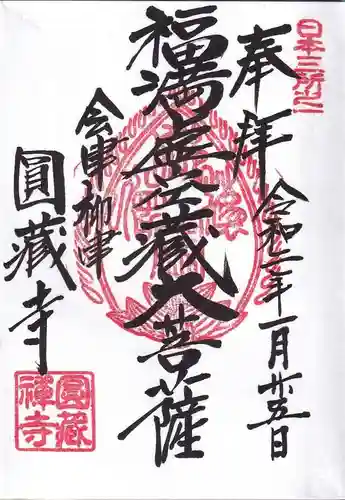 日本三所之一
奉拝
令和二年一月廿五日
福満虚空蔵大菩薩
会津柳津
圓藏寺
圓蔵禅寺